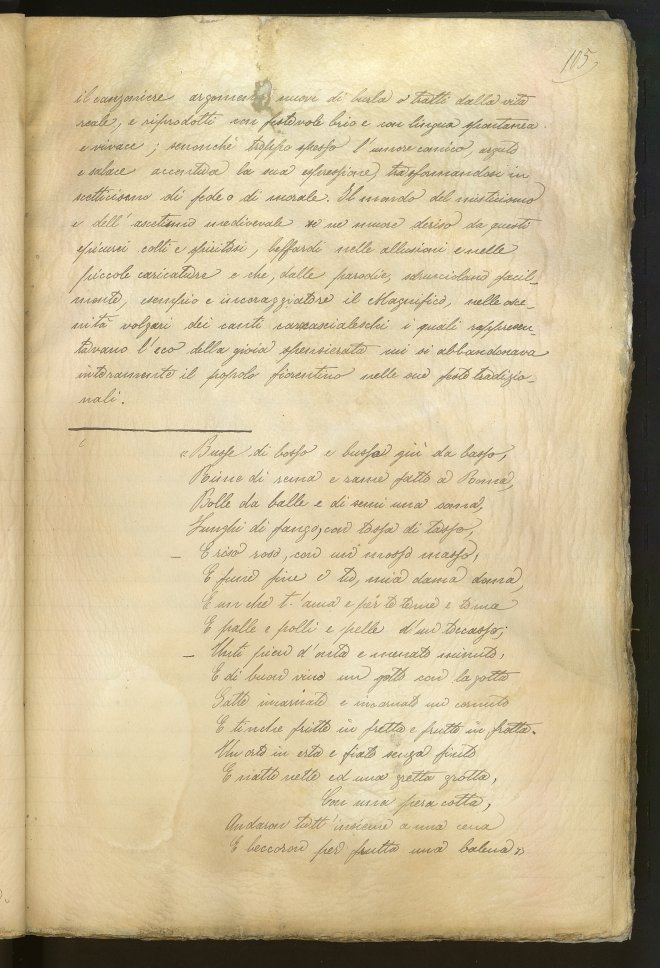 105
il canzoniere argomenti nuovi di burla o tratti dalla vita
reale, e riprodotti con festevole brio e con lingua spontanea
e vivace; senonchè troppo spesso l'umore comico, arguto
e salace accentua la sua espressione, trasformandosi in
scetticismo di fede o di morale. Il mondo del misticismo
e dell'ascetismo medioevale se ne muore deriso da questi
epicurei colti e spiritosi, beffardi nelle allusioni e nelle
piccole caricature e che, dalle parodie, sdrucciolano facil-
mente, esempio e incoraggiatore il Magnifico, nelle osce-
nità volgari dei canti carnascialeschi i quali rappresen-
tavano l'eco della gioia spensierata cui si abbandonava
interamente il popolo fiorentino nelle sue feste tradizio-
nali.
« Busse di bosso e bussa giù da basso,
Reine di rema e rame fatto a Roma,
Bolle da balle e di semi una soma,
Funghi di fango, con tossa di tasso,
E riso roso, con un mosso masso,
E fune fine e to, mia dama doma,
E un che t'ama e per te teme e toma
E palle e polli e pelle d'un
Unti pien d'onta e menato minuto,
E di buon vino un gotto con la gotta
Gatto incarnato e incornato un cornuto
E tinche fritte in fretta e frutte in frotta.
Un orto in erta e fiato senza fiuto
E natte nette ed una gretta grotta,
Con una pera cotta,
Andaron tutt'insieme a una cena
E beccoron per frutta una balena »